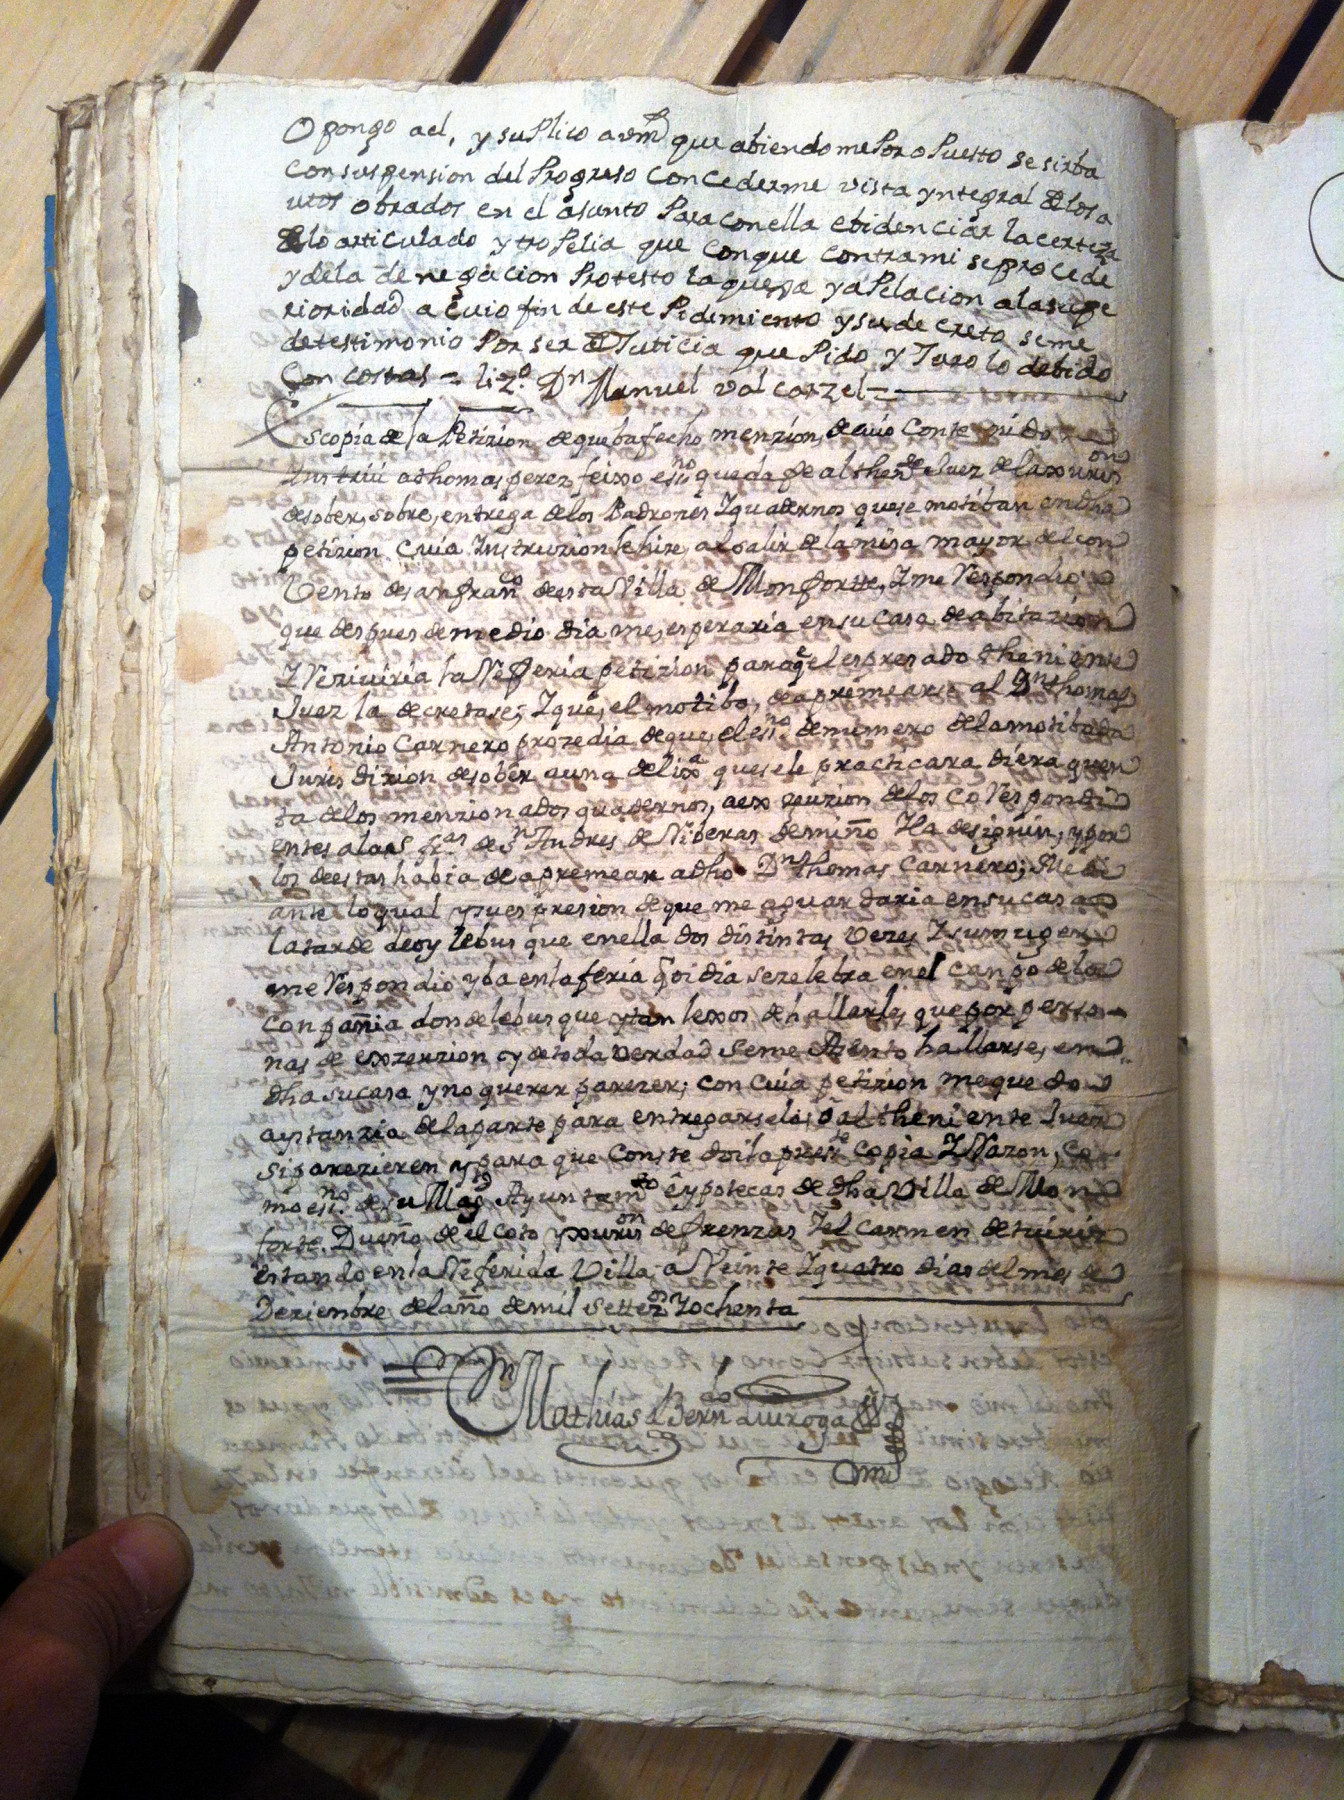 Opongo a el, y suplico a vmd que abiendome Poropuesto se sirba
Con suspension del Progreso Concederme vista yntegral de los a
utos obrados en el asunto Para con ella ebidenciar la certeza
de lo articulado y tropelia que con que contra mi se procede
y de la denegacion Protesto la quexa y aPelacion a la supe
rioridad a cuio fin de este Pidimiento y su decreto se me
de testimonio Por ser de Justicia que Pido y Juro lo debido
Con costas = liz.do Dn Manuel valcarzel =
Es copia de la Petizion de que ba fecho menzion, de cuio Contenido
Instruí a thomas perez feixo esno que da fe al thente Juez de la xurison
de sober, sobre, entrega de los Padrones I quadernos que se motiban en dha
petizion Cuia Instruzion le hize al salir de la misa mayor del con
Vento de san franco de esta Villa de Monfortte, I me Respondio
que despues de medio dia me, esperaria en su casa de abitazion
I Reziviria la Referia petizion para qe el espresado theniente
Juez la decretase; I que, el motibo, de apremearse al Dn thomas
Antonio Carnero prozedia de que, el esno de numero de la motibada
Jurisdizion de sober a una delixa que se le practicara, diera quen
ta de los menzionados quadernos, a exzeuzion de los coRespondi
entes a las fras de Sn Andres de Riberas de miño I la de siguin, y por
los de estas habia de apremear a dho Dn thomas Carnero; Medi
ante lo qual y su espresion de que me aguardaria en su casa a
la tarde de oy le busque en ella dos distintas Vezes I su muger
me Respondio yba en la feria q oi dia se zelebra en el canpo de la
Conpañia donde le busque y tan lexos de hallarle, que por perso
nas de exzenzion y de toda verdad se me Asento hallarse, en
dha su casa y no querer parezer; con cuia petizion me quedo
a ynstanzia de la parte para entregarsela, o al theniente Juez
si parezieren y para que Conste doi la presente copia I Razon, co
mo esno de su Magd Ayuntamto e ypotecas de dha Villa de Mon
forte Dueño de el Coto y xurison de frenzas I el Carmen de tuiriz
estando en la Referida Villa a Veinte I quatro dias del mes de
Deziembre del año de mil settezos I ochenta
Mathias Berndo Quiroga